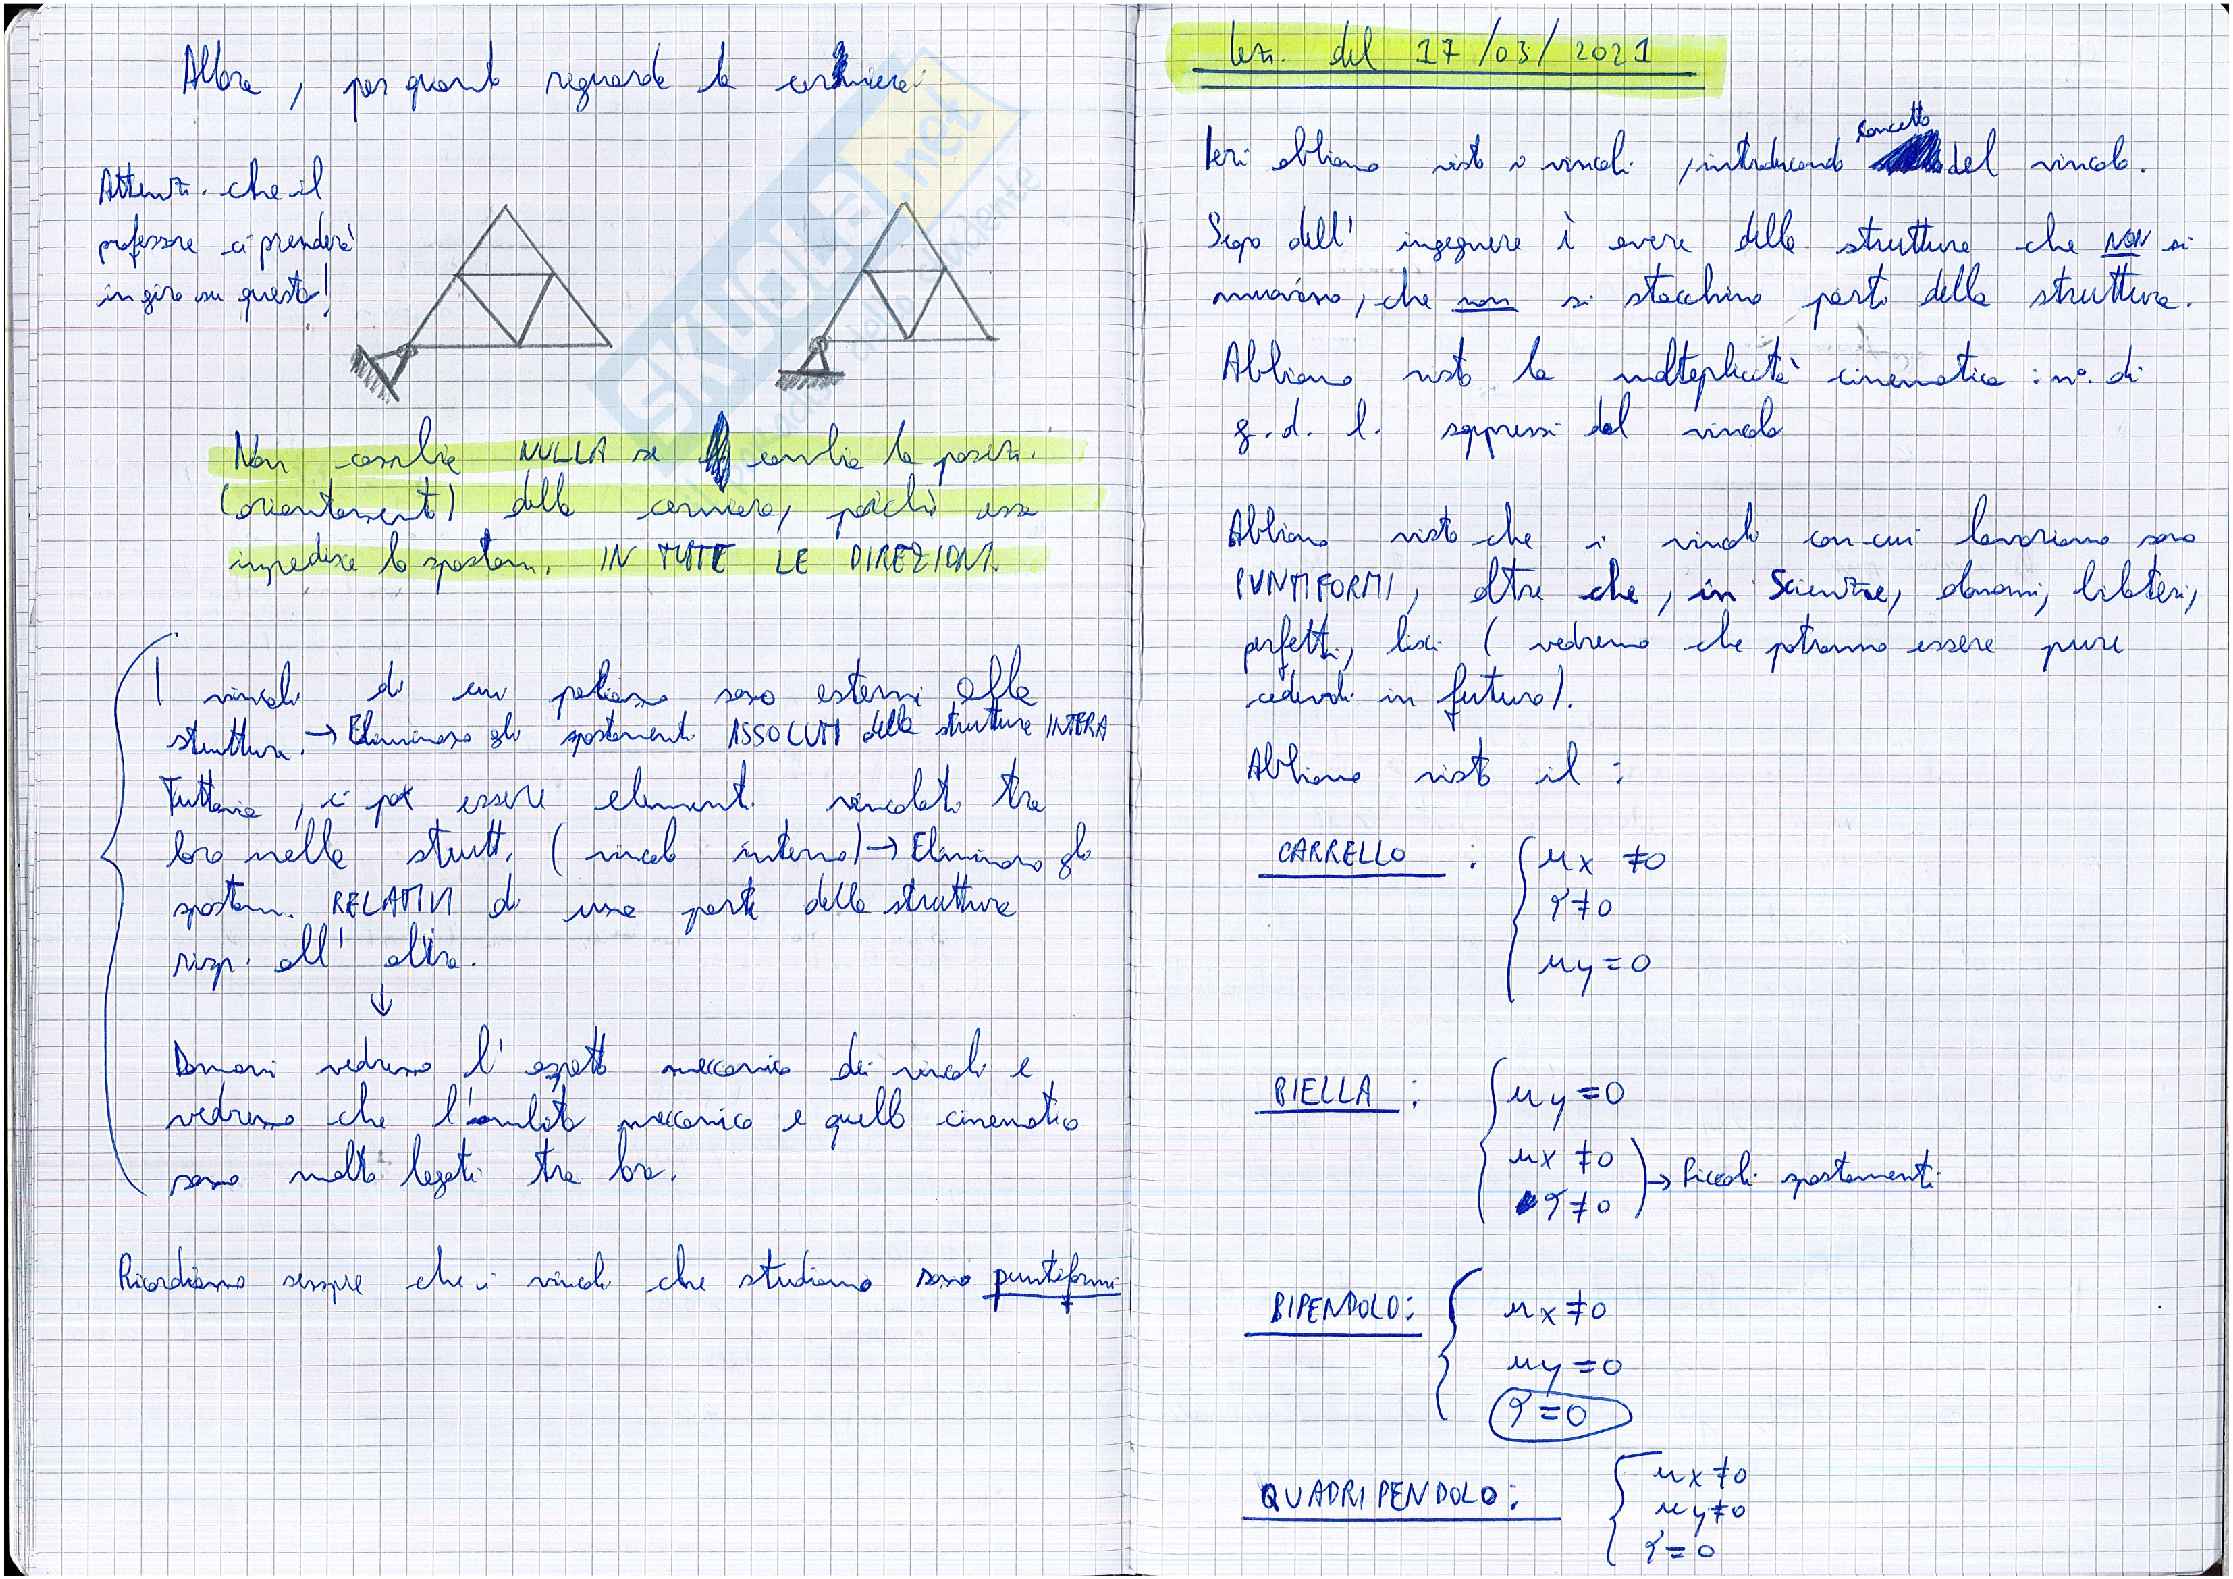 Allora, per quanto riguarda la cerniera:
Attenz. che il
professore ci prenderà
in giro su questo!
Non cambia NULLA se cambia la posiz.
(orientamento) della cerniera, poichè essa
impedisce lo spostam. IN TUTTE LE DIREZIONI.
I vincoli di cui parliamo sono esterni alla
struttura. → Eliminano gli spostamenti ASSOLUTI della struttura INTERA
Tuttavia, ci può essere elementi vincolati tra
loro nella strutt. (vincolo interno) → Eliminano gli
spostam. RELATIVI di una parte della struttura
risp. all'altra.
↓
Domani vedremo l'aspetto meccanico dei vincoli e
vedremo che l'ambito meccanico e quello cinematico
sono molto legati tra loro.
Ricordiamo sempre che i vincoli che studiamo sono puntiformi
Lez. del 17/03/2021
Ieri abbiamo visto i vincoli, introducendo concetto del vincolo.
Scopo dell'ingegnere è avere delle strutture che NON si
muovano, che non si stacchino parti della struttura.
Abbiamo visto la molteplicità cinematica: n°. di
g.d.l. soppressi dal vincolo
Abbiamo visto che i vincoli con cui lavoriamo sono
PUNTIFORMI, oltre che, in Scienze, olonomi, bilateri,
perfetti, lisci (vedremo che potranno essere pure
cedevoli in futuro).
Abbiamo visto il:
CARRELLO : { ux ≠0
φ≠0
uy=0
BIELLA : { uy=0
ux ≠0
φ≠0 ) → Piccoli spostamenti
BIPENDOLO: { ux≠0
uy=0
φ=0
QUADRIPENDOLO: { ux≠0
uy≠0
φ=0
SKUOLA.net